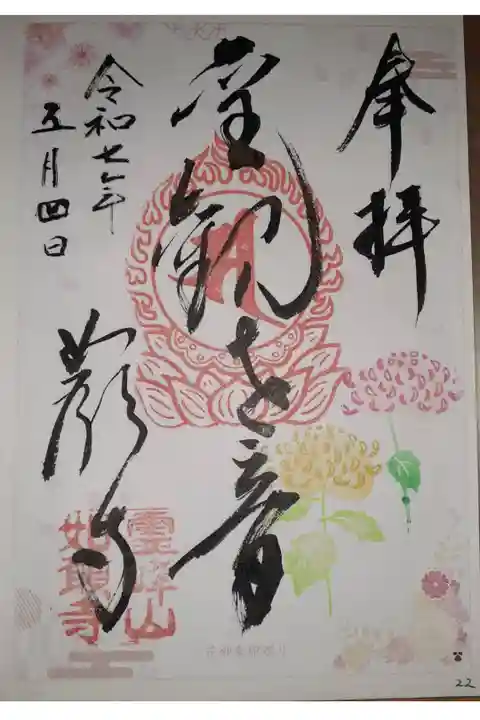 奉拝
聖観世音
令和七年
五月四日
如願寺
靈峰山
如願寺
22